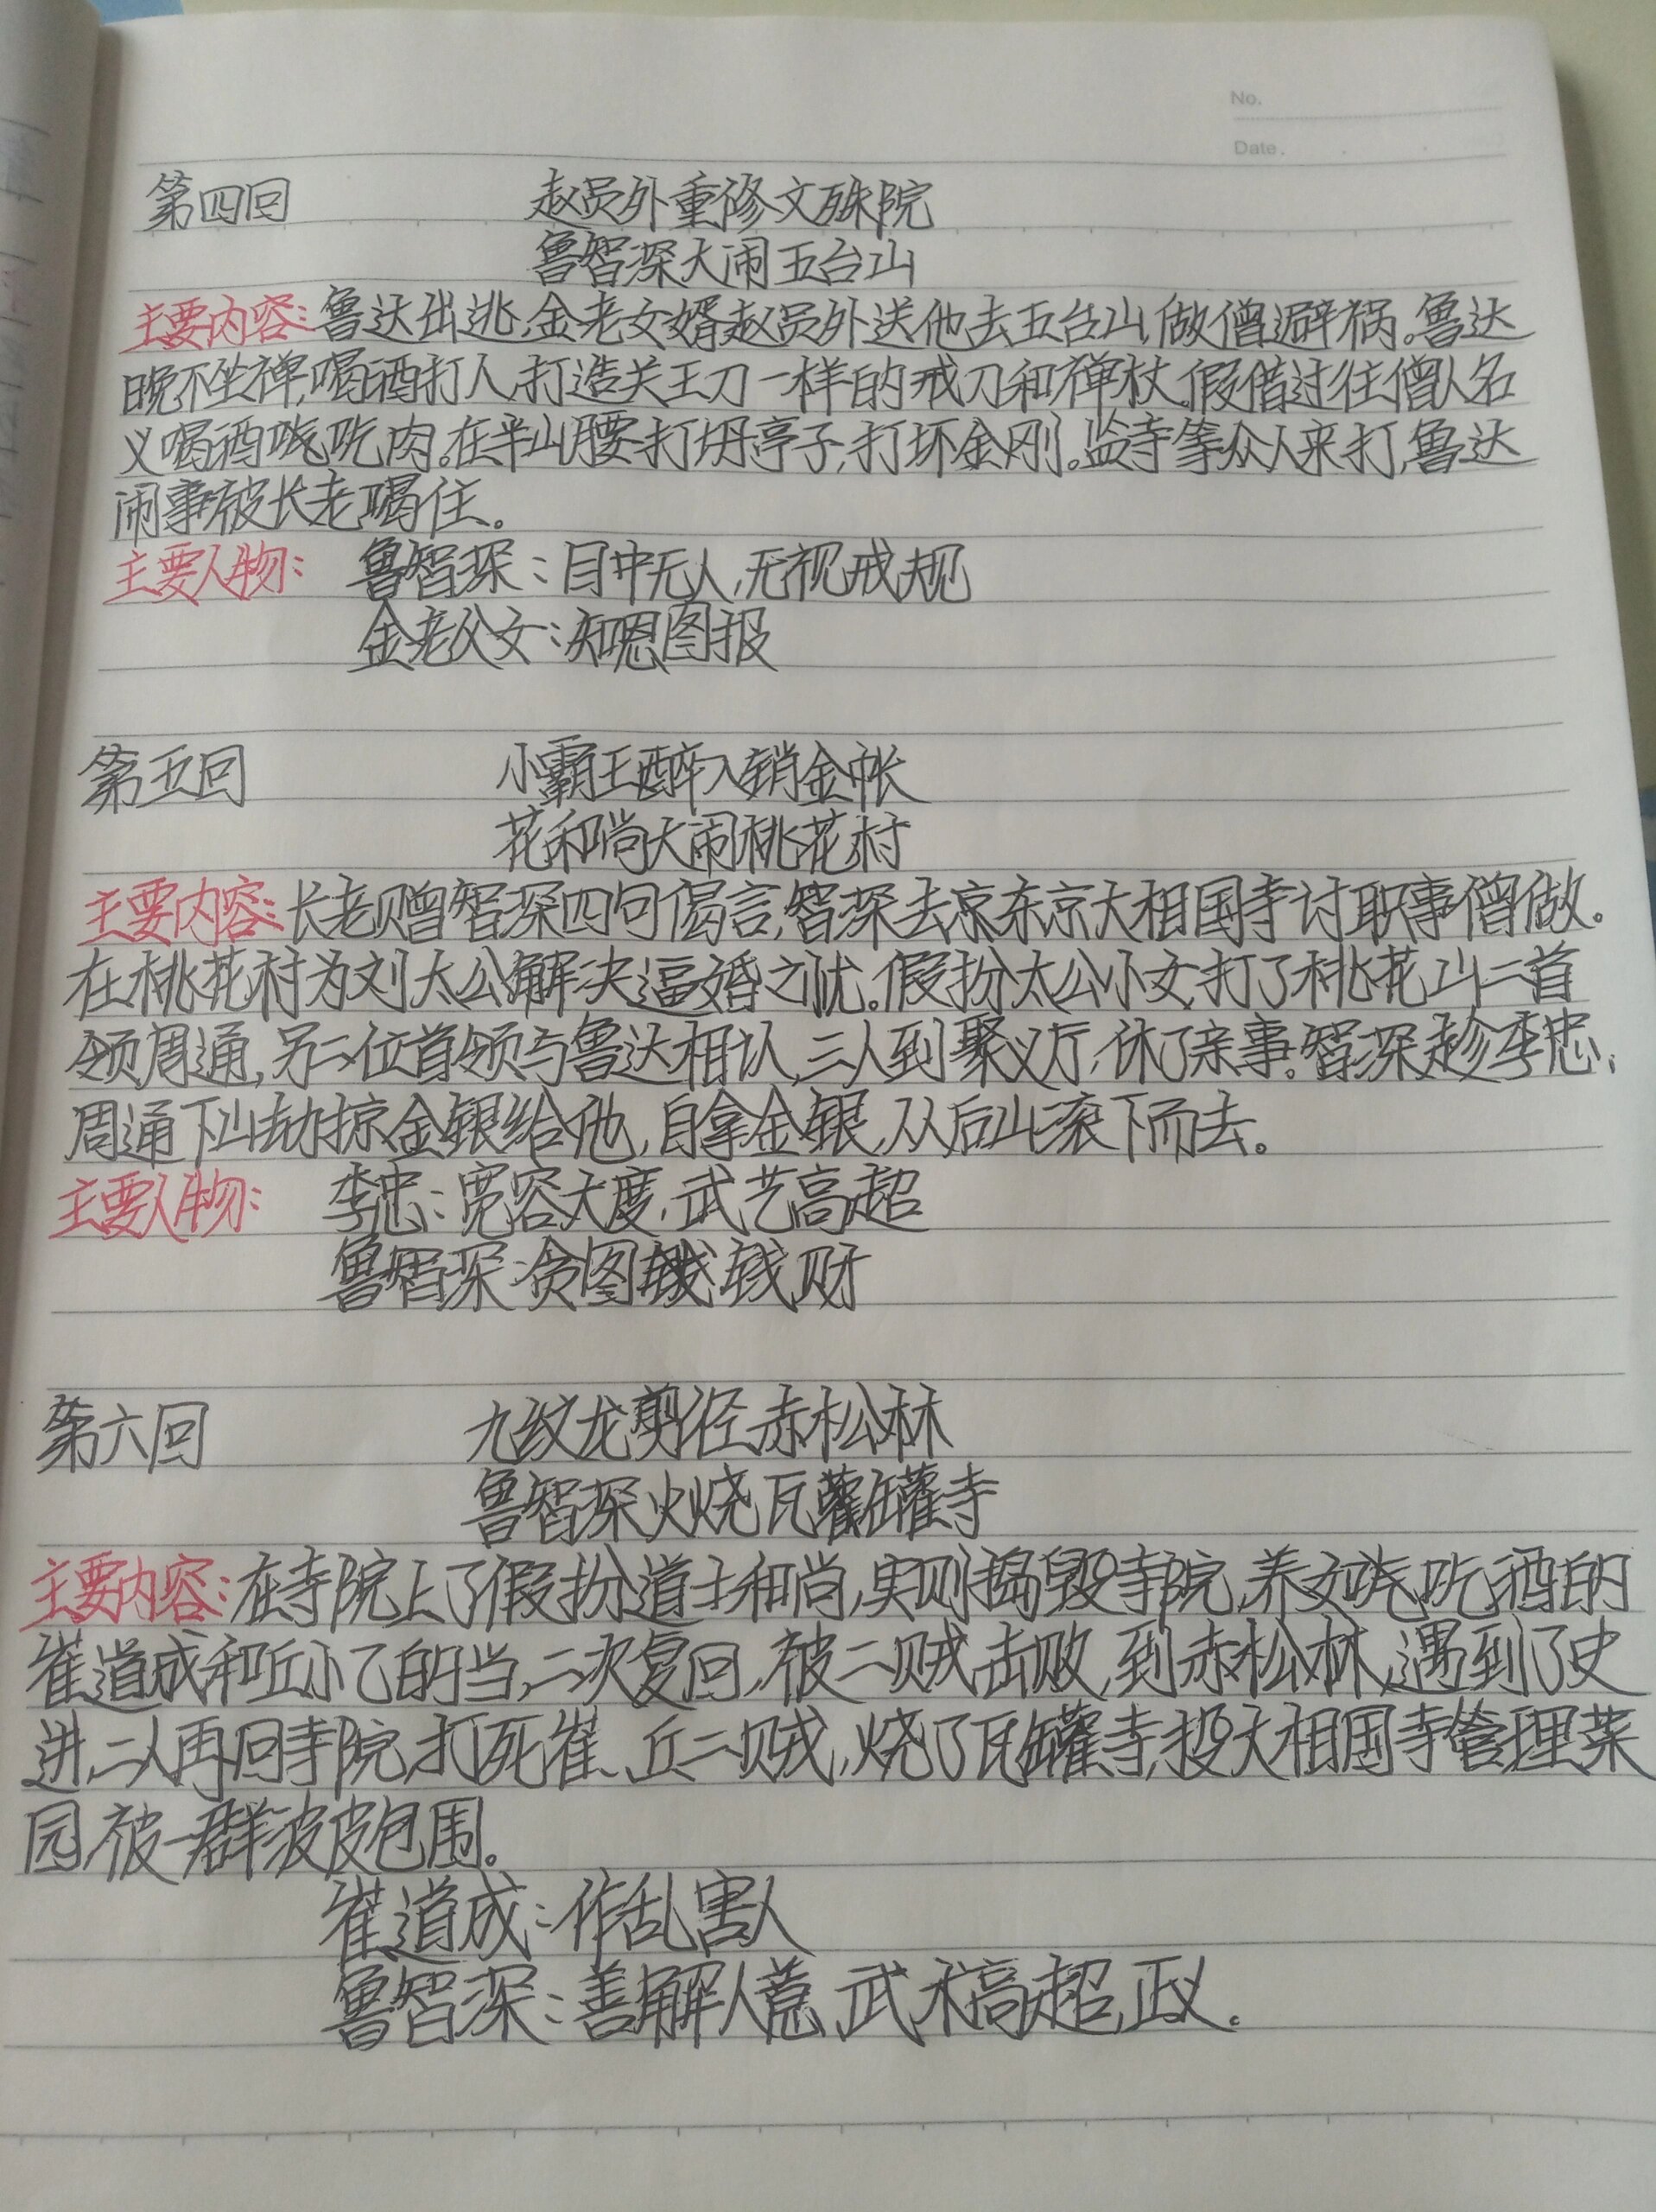 No.
Date.
第四回 赵员外重修文殊院
鲁智深大闹五台山
主要内容:鲁达出逃,金老女婿赵员外送他去五台山,做僧避祸。鲁达
晚不坐禅,喝酒打人,打造关王刀一样的戒刀和禅杖,假借过往僧人名
义喝酒吃肉。在半山腰打坍亭子,打坏金刚。监寺等众人来打,鲁达
闹事被长老喝住。
主要人物: 鲁智深:目中无人,无视戒规
金老父女:知恩图报
第五回 小霸王醉入销金帐
花和尚大闹桃花村
主要内容:长老赠智深四句偈言,智深去东京大相国寺讨职事僧做。
在桃花村为刘太公解决逼婚之忧。假扮太公小女,打了桃花山二首
领周通,另一位首领与鲁达相认,三人到聚义厅,休了亲事。智深趁李忠、
周通下山劫掠金银给他,自拿金银,从后山滚下而去。
主要人物: 李忠:宽容大度,武艺高超
鲁智深:贪图钱财
第六回 九纹龙剪径赤松林
鲁智深火烧瓦罐寺
主要内容:在寺院上了假扮道士和尚,实则捣毁寺院,养女吃酒的
崔道成和丘小乙的当,二次复回,被二贼击败,到赤松林,遇到了史
进,二人再回寺院,打死崔、丘二贼,烧了瓦罐寺,投大相国寺管理菜
园,被一群泼皮包围。
崔道成:作乱害人
鲁智深:善解人意,武术高超,正义。